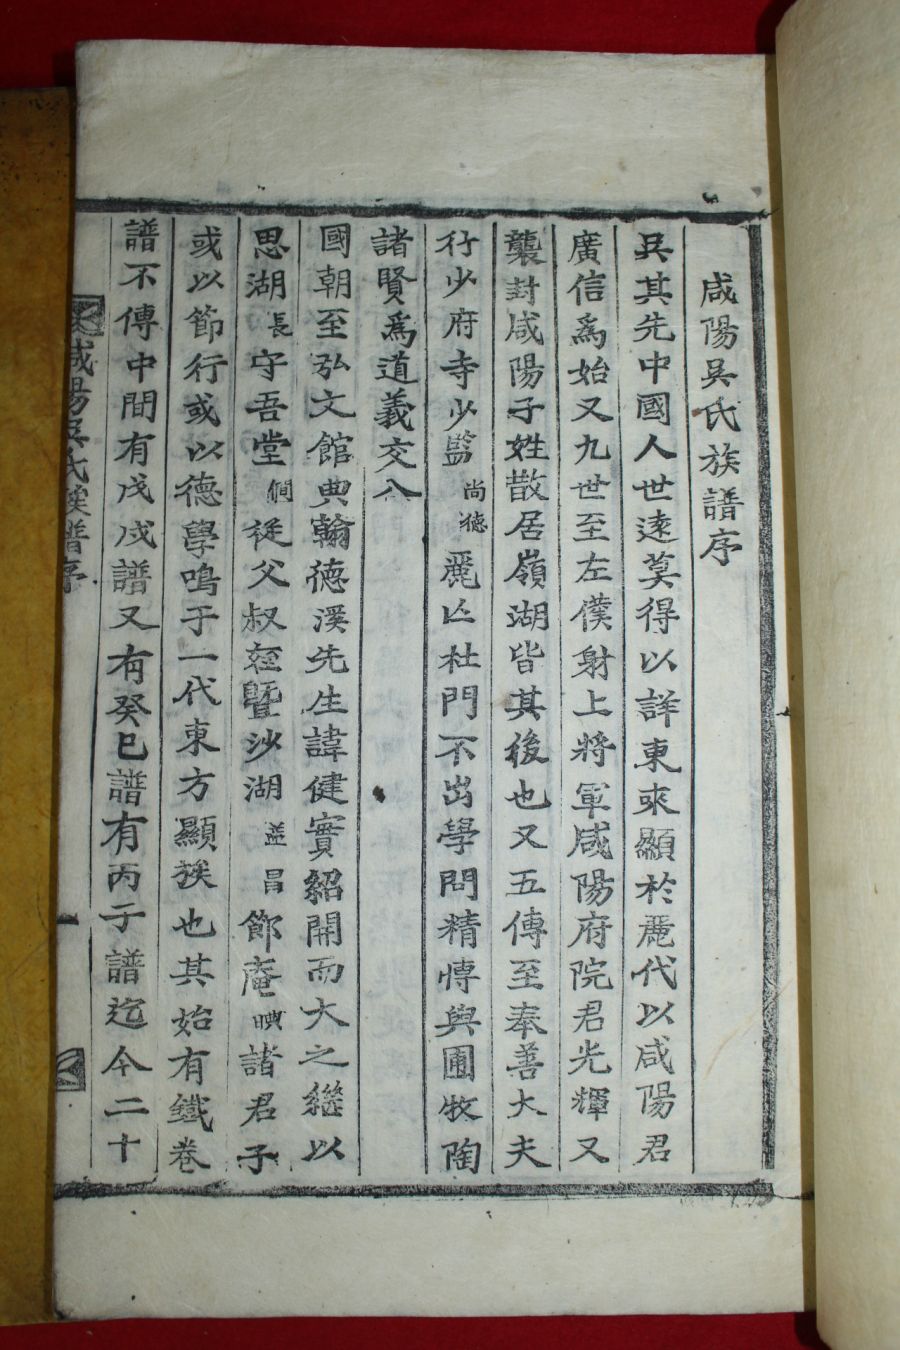 咸陽吳氏族譜序
吳其先中國人世遠莫得以詳東來顯於麗代以咸陽君
廣信爲始又九世至左僕射上將軍咸陽府院君光輝又
襲封咸陽子姓散居嶺湖皆其後也又五傳至奉善大夫
行少府寺少監尚德麗亡杜門不出學問精博與圃牧陶
諸賢爲道義交入
國朝至弘文館典翰德溪先生諱健實紹開而大之繼以
思湖長守吾堂僩從父叔姪曁沙湖益昌節庵暎諸君子
或以節行或以德學鳴于一代東方顯族也其始有鐵卷
譜不傳中間有戊戌譜又有癸巳譜有丙子譜迄今二十
咸陽吳氏族譜序
一